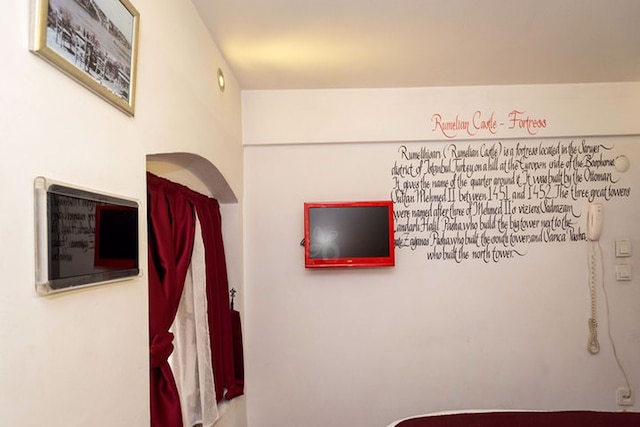 Rumelian Castle - Fortress
Rumelihisarı (Rumelian Castle) is a fortress located in the Sarıyer
district of Istanbul, Turkey, on a hill at the European side of the Bosphorus
It gives the name of the quarter around it. It was built by the Ottoman
Sultan Mehmed II between 1451 and 1452. The three great towers
were named after three of Mehmed II's viziers,
Halil Pasha, who built the big tower next to the
Zaganos Pasha, who built the south tower, and Sarıca Pasha,
who built the north tower.